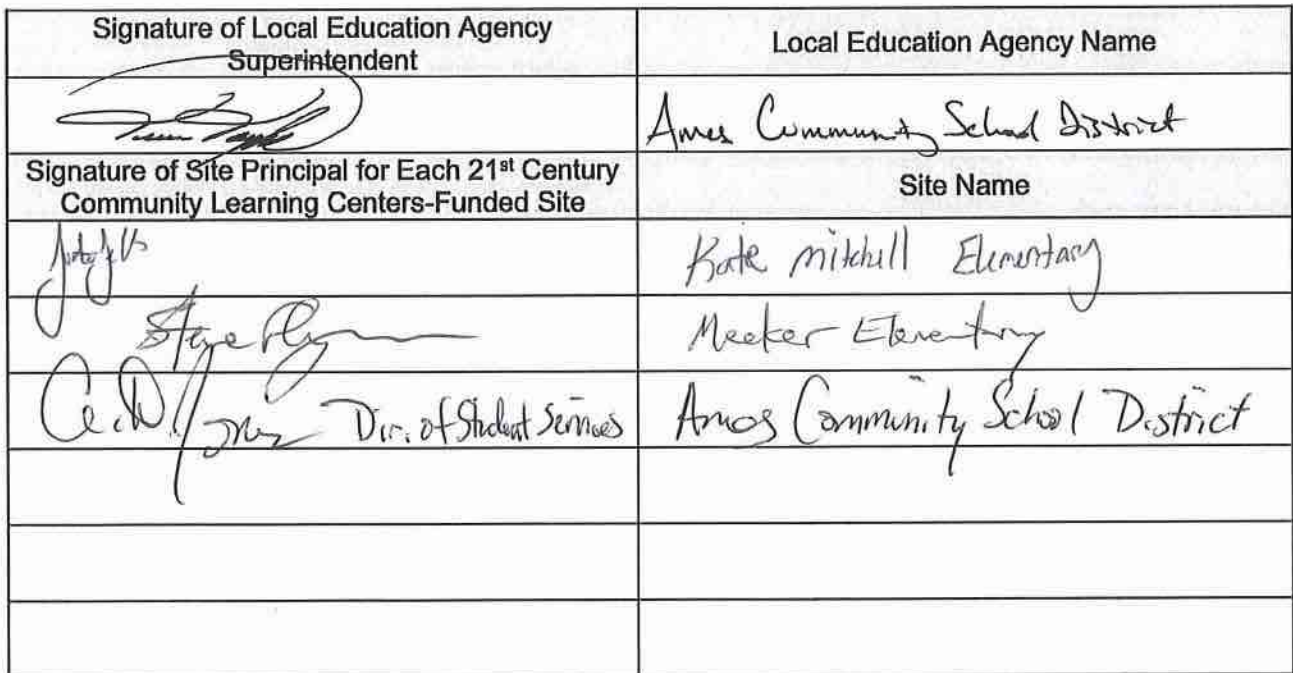 Signature of Local Education Agency
Superintendent
Local Education Agency Name
Ames Community School District
Signature of Site Principal for Each 21st Century
Community Learning Centers-Funded Site
Site Name
Kate Mitchell Elementary
Steve Flynn
Meeker Elementary
Dir. of Student Services
Ames Community School District